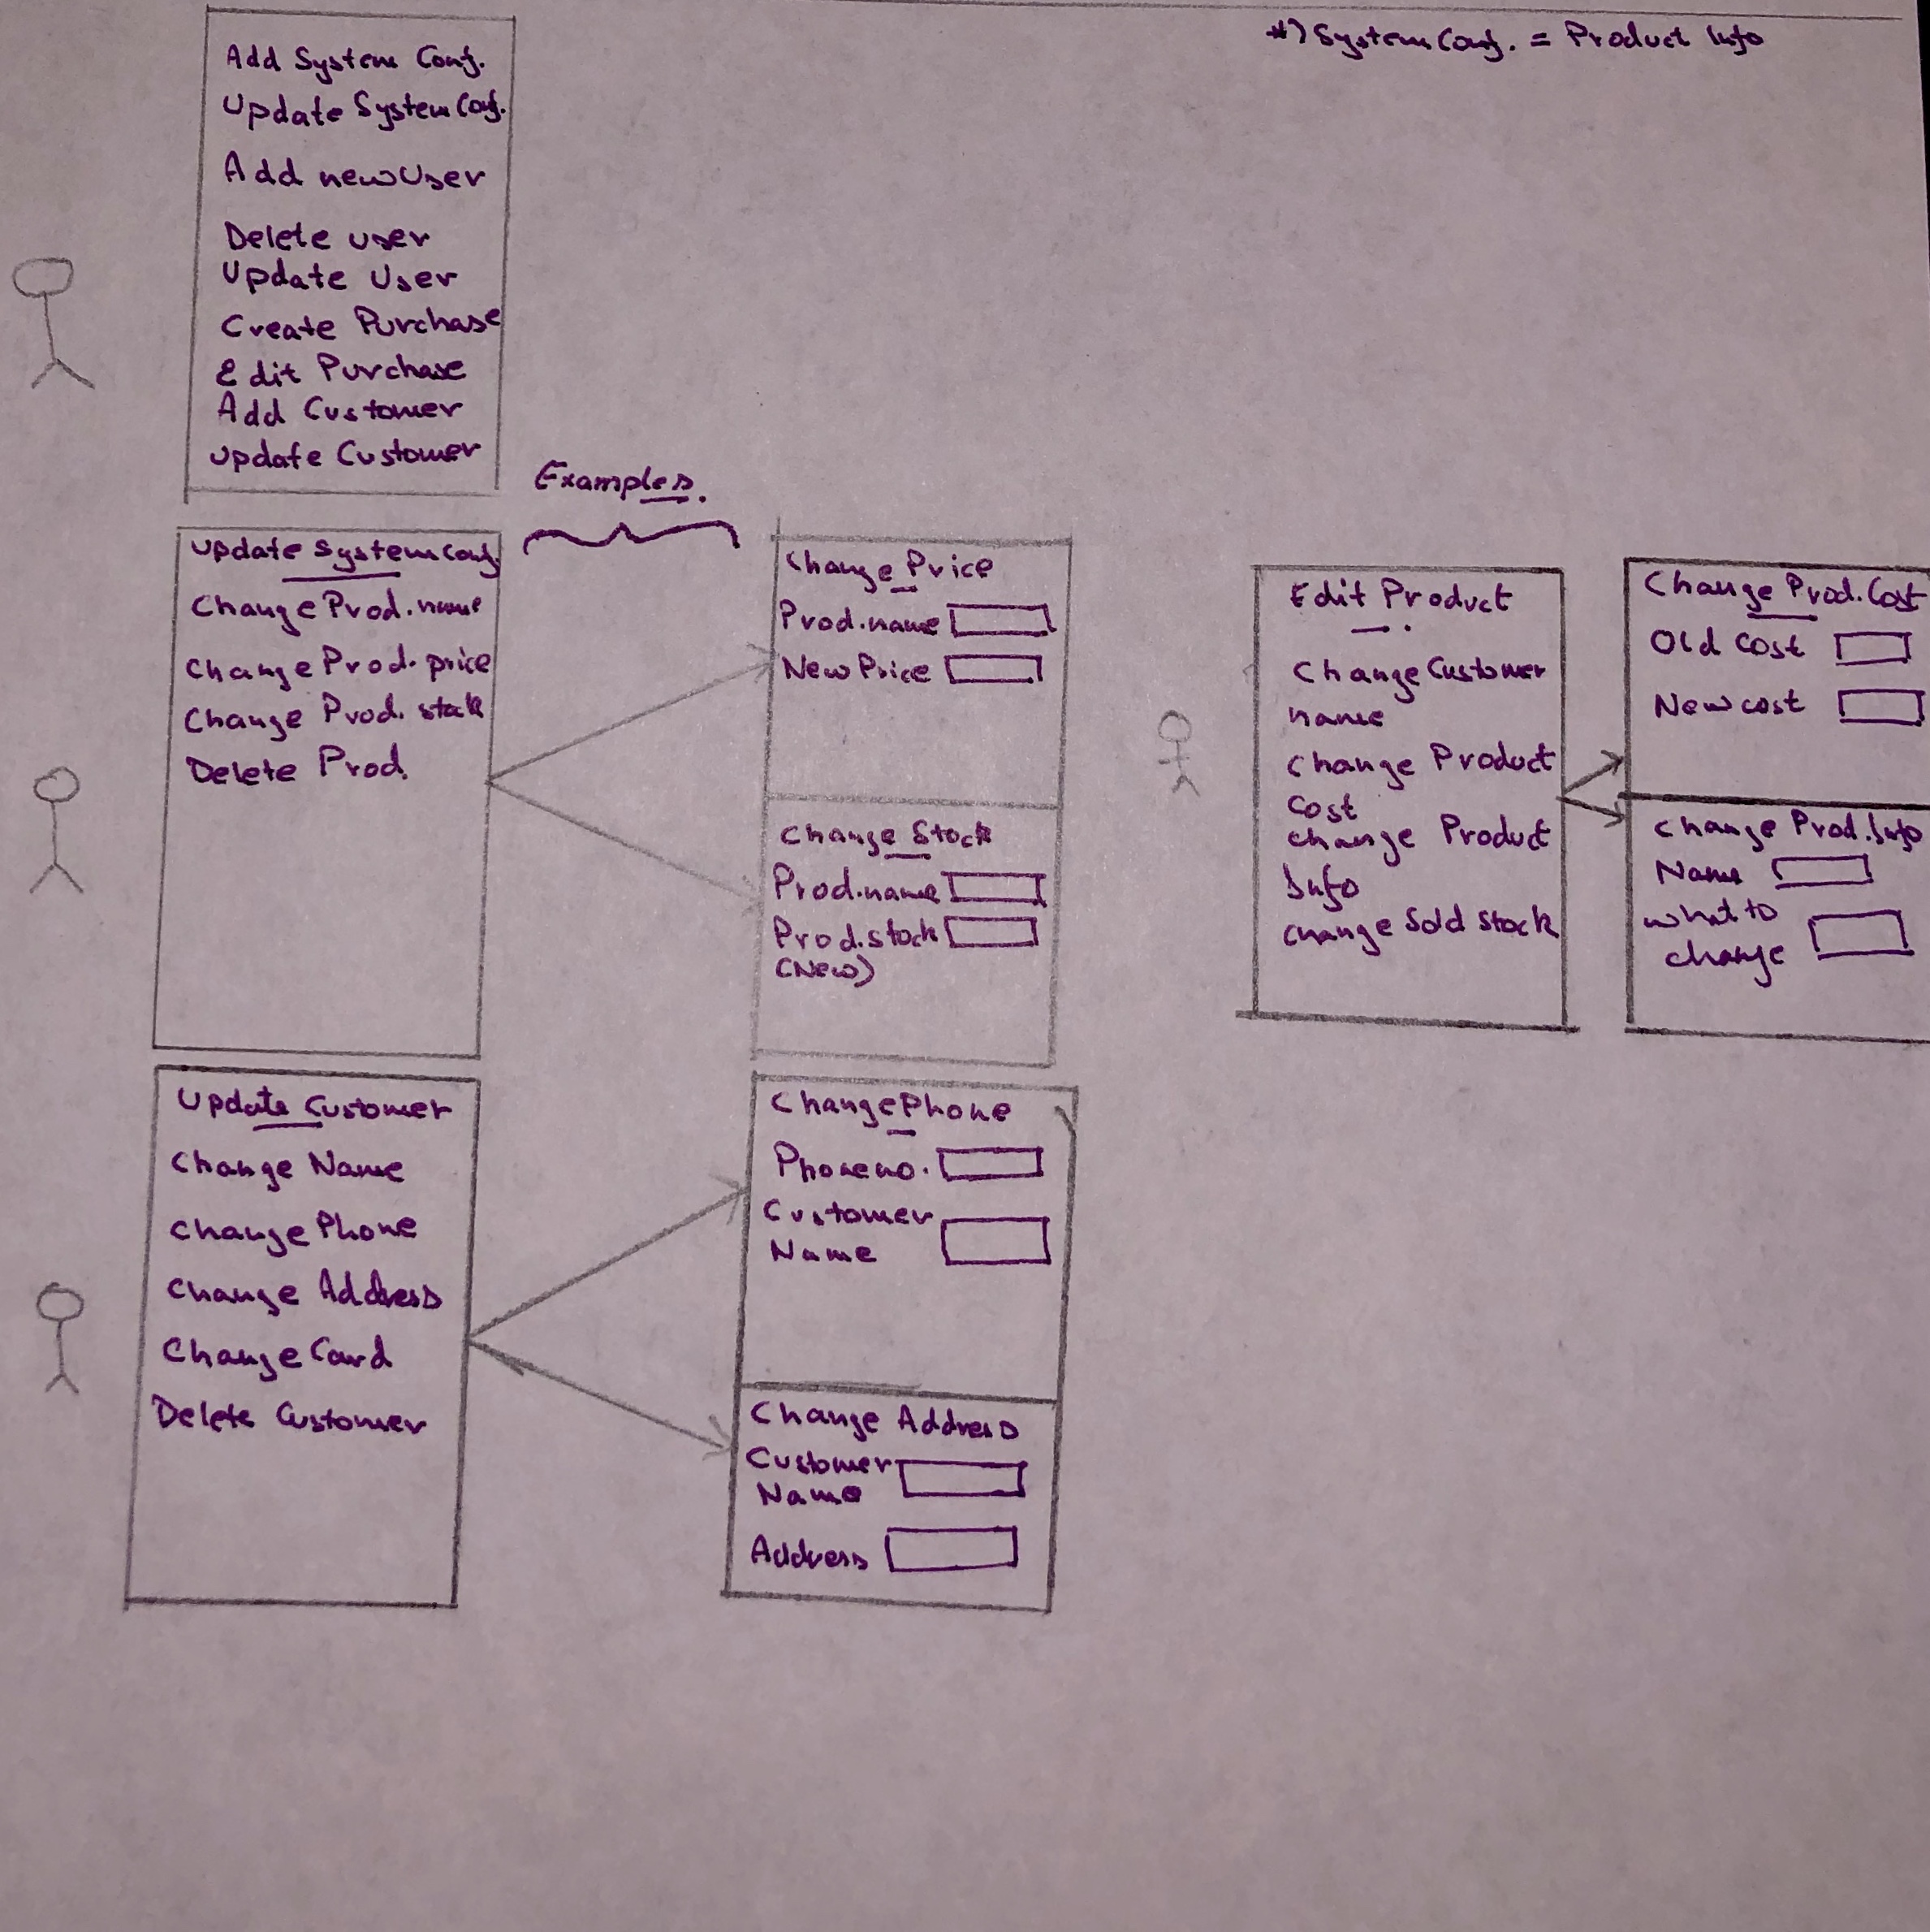 *) System Conf. = Product Info
Add System Conf.
Update System Conf.
Add new User
Delete user
Update User
Create Purchase
Edit Purchase
Add Customer
Update Customer
Examples.
Update System Conf.
Change Prod. name
Change Prod. price
Change Prod. stock
Delete Prod.
Change Price
Prod. name
New Price
Change Stock
Prod. name
Prod. stock
(New)
Edit Product
Change Customer
name
Change Product
Cost
change Product
Info
change Sold Stock
Change Prod. Cost
Old Cost
New cost
Change Prod. Info
Name
what to
change
Update Customer
Change Name
Change Phone
Change Address
Change Card
Delete Customer
Change Phone
Phone no.
Customer
Name
Change Address
Customer
Name
Address